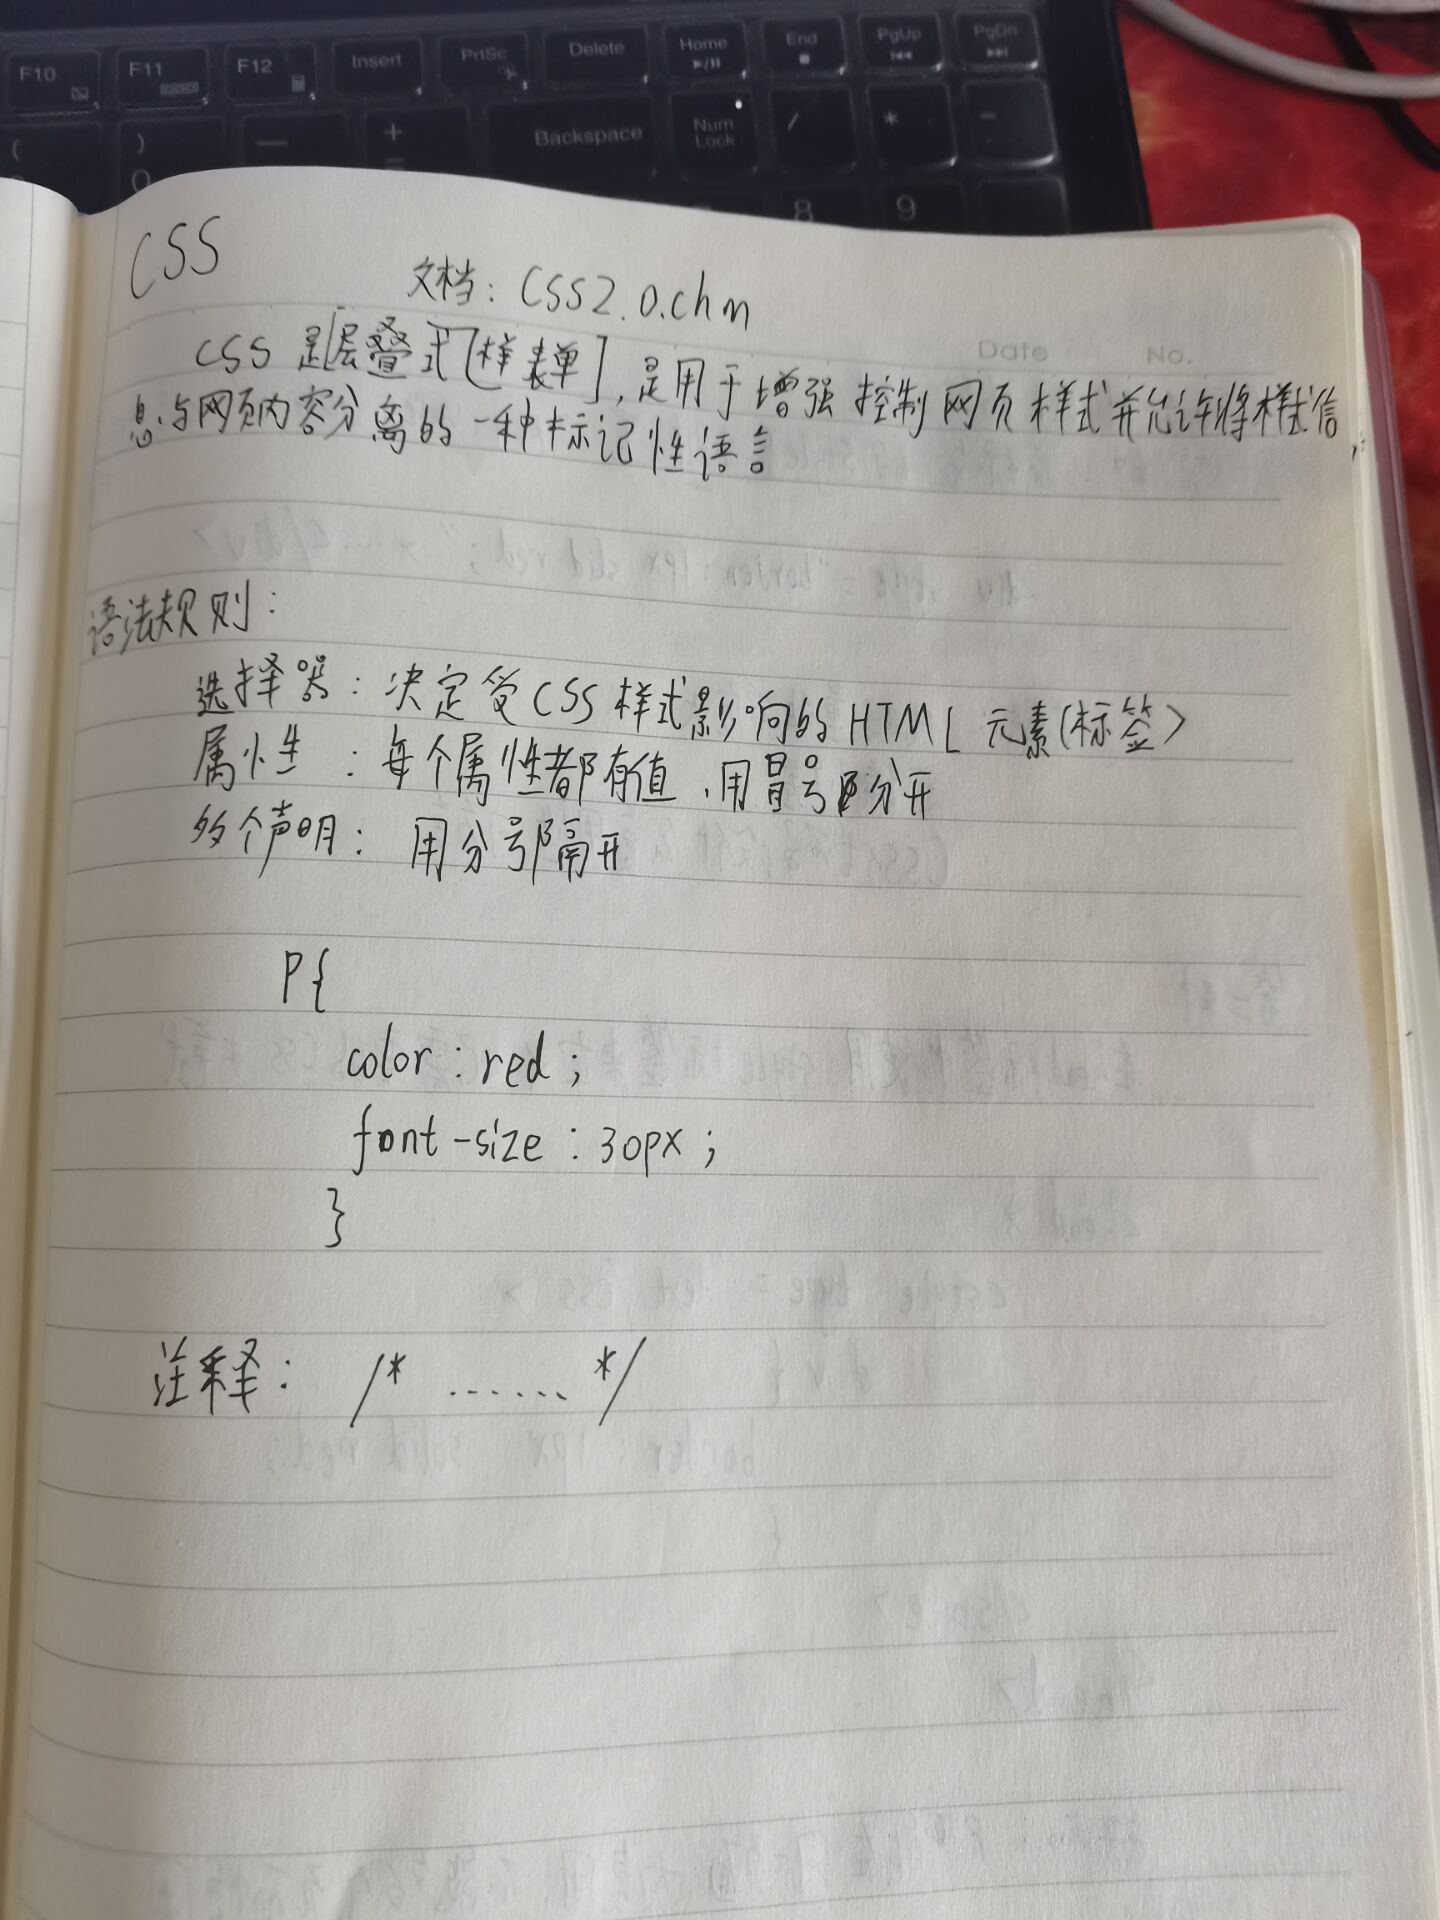 F10 F11 F12 Insert PrtSc Delete Home End PgUp PgDn
( ) — + Backspace Num Lock / * -
0 = 8 9
CSS
文档: CSS2.0.chm
Date No.
CSS 是[层叠式[样表单],是用于增强控制网页样式并允许将样式信
息与网页内容分离的一种标记性语言
语法规则:
选择器: 决定受CSS样式影响的HTML元素(标签>
属性: 每个属性都有值,用冒号分开
多个声明: 用分号隔开
P{
color : red ;
font-size : 30px ;
}
注释: /* ....... */